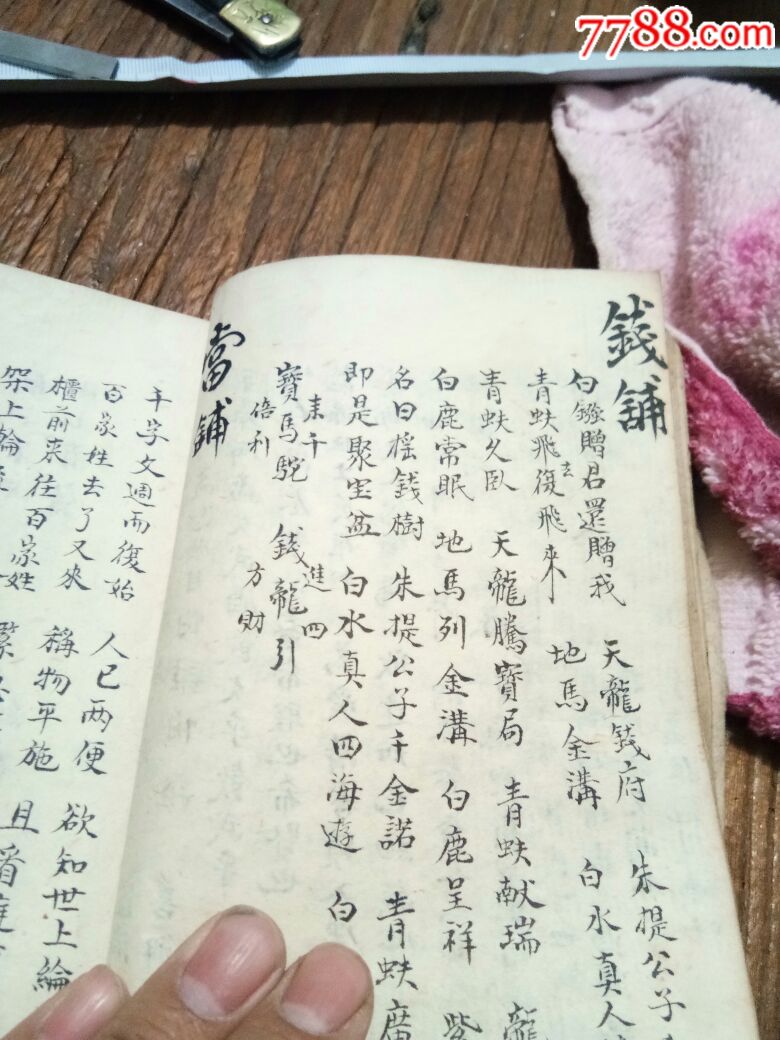 7788.com
錢舖
白鏹贈君還贈我 天龍錢府 朱提公子
青蚨飛去復飛來 地馬金溝 白水真人
青蚨久臥 天龍騰寶局 青蚨献瑞 龍
白鹿常眠 地馬列金溝 白鹿呈祥 紫
名曰摇錢樹 朱提公子千金諾 青蚨廣
即是聚宝盆 白水真人四海遊 白
寶馬駝來千倍利
錢龍引進四方財
當舖
千字文週而復始 人已兩便 欲知世上
百家姓去了又來 稱物平施 且看
櫃前来往百家姓
架上輪